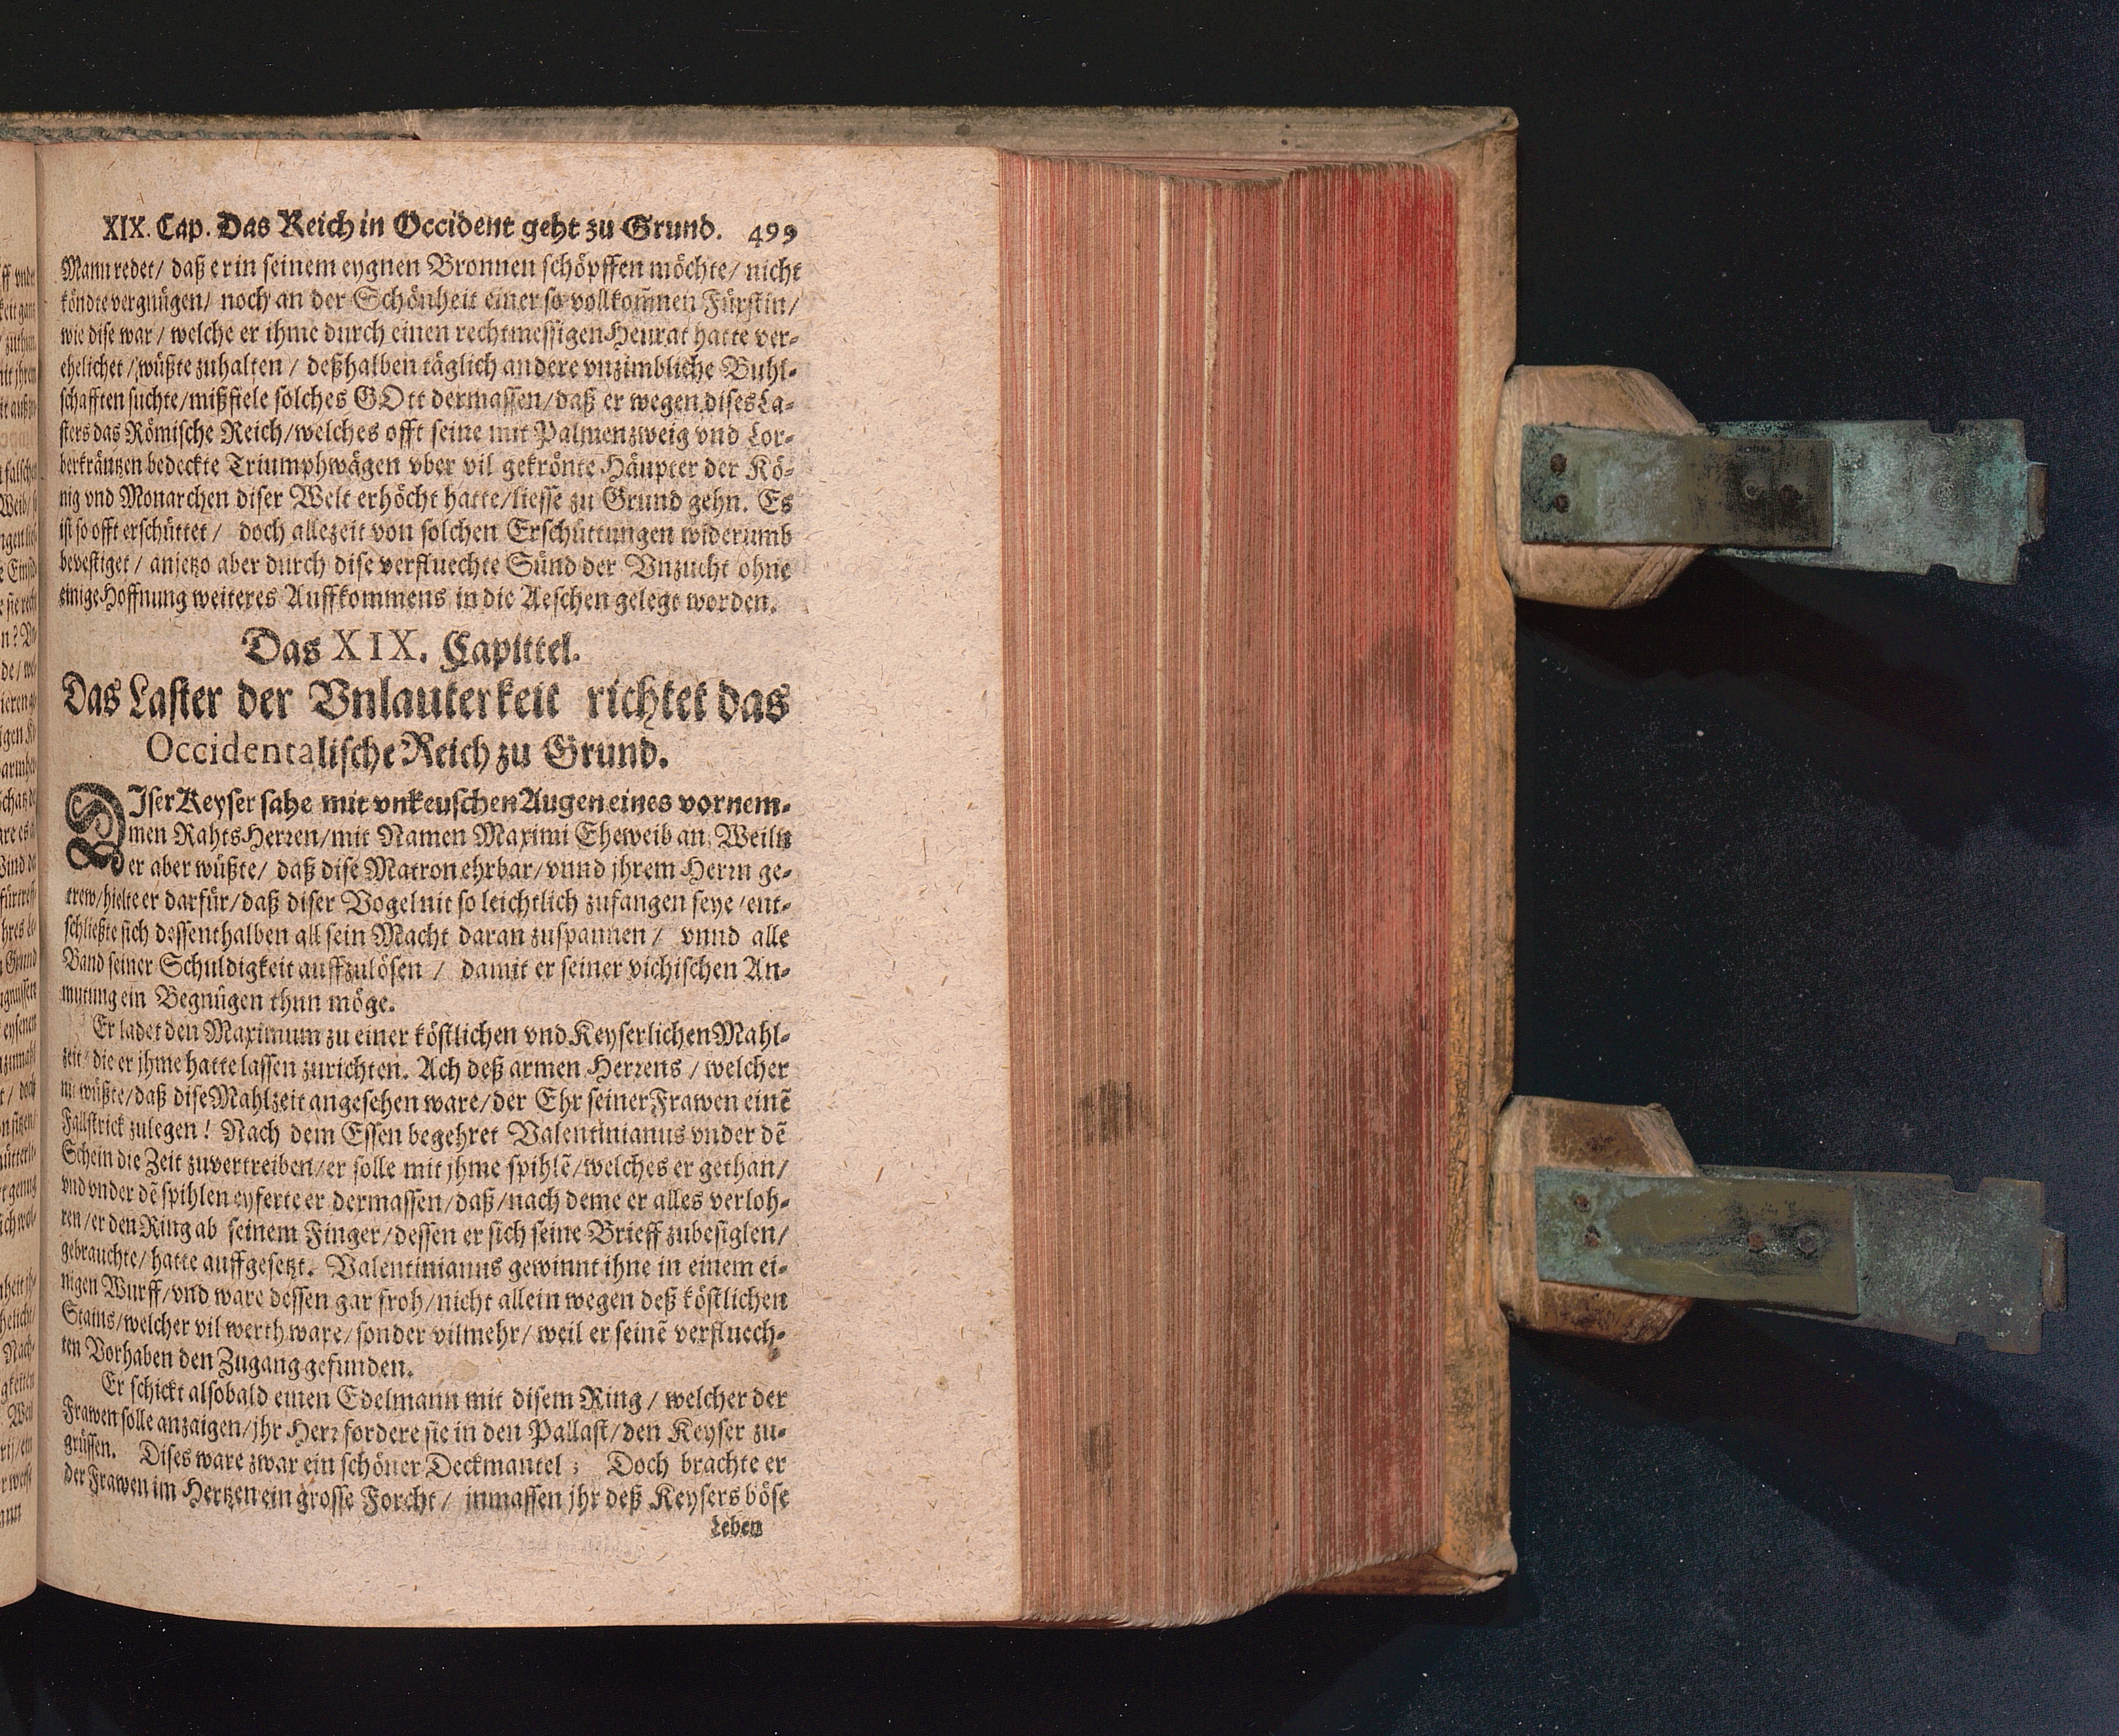 XIX. Cap. Das Reich in Occident geht zu Grund. 499
Mann redet / daß er in seinem eygnen Bronnen schöpffen möchte / nicht
köndte vergnügen / noch an der Schönheit einer so vollkom̃nen Fürstin /
wie dise war / welche er ihme durch einen rechtmessigen Heurat hatte ver-
ehelichet / wüßte zuhalten / deßhalben täglich andere vnzimbliche Buhl-
schafften suchte / mißfiele solches GOtt dermassen / daß er wegen dises La-
sters das Römische Reich / welches offt seine mit Palmenzweig vnd Lor-
berkräntzen bedeckte Triumphwägen vber vil gekrönte Häupter der Kö-
nig vnd Monarchen diser Welt erhöcht hatte / liesse zu Grund gehn. Es
ist so offt erschüttet / doch allezeit von solchen Erschüttungen widerumb
bevestiget / anjetzo aber durch dise verfluechte Sünd der Vnzucht ohne
einige Hoffnung weiteres Auffkommens in die Aeschen gelegt worden.
Das XIX. Capittel.
Das Laster der Vnlauterkeit richtet das
Occidentalische Reich zu Grund.
DIser Keyser sahe mit vnkeuschen Augen eines vornem-
men Rahts-Herren / mit Namen Maximi Eheweib an. Weiln
er aber wüßte / daß dise Matron ehrbar / vnnd jhrem Herrn ge-
trew / hielte er darfür / daß diser Vogel nit so leichtlich zufangen seye / ent-
schließte sich dessenthalben all sein Macht daran zuspannen / vnnd alle
Band seiner Schuldigkeit auffzulösen / damit er seiner vichischen An-
mutung ein Begnügen thun möge.
Er ladet den Maximum zu einer köstlichen vnd Keyserlichen Mahl-
zeit / die er jhme hatte lassen zurichten. Ach deß armen Herrens / welcher
nit wüßte / daß dise Mahlzeit angesehen ware / der Ehr seiner Frawen einẽ
Fallstrick zulegen! Nach dem Essen begehret Valentinianus vnder dẽ
Schein die Zeit zuvertreiben / er solle mit jhme spihlẽ / welches er gethan /
vnd vnder dẽ spihlen eyferte er dermassen / daß / nach deme er alles verloh-
ren / er den Ring ab seinem Finger / dessen er sich seine Brieff zubesiglen /
gebrauchte / hatte auffgesetzt. Valentinianus gewinnt ihne in einem ei-
nigen Wurff / vnd ware dessen gar froh / nicht allein wegen deß köstlichen
Stains / welcher vil werth ware / sonder vilmehr / weil er seinẽ verfluech-
ten Vorhaben den Zugang gefunden.
Er schickt alsobald einen Edelmann mit disem Ring / welcher der
Frawen solle anzaigen / jhr Herr fordere sie in den Pallast / den Keyser zu-
grüssen. Dises ware zwar ein schöner Deckmantel; Doch brachte er
der Frawen im Hertzen ein grosse Forcht / inmassen jhr deß Keysers böse
Leben